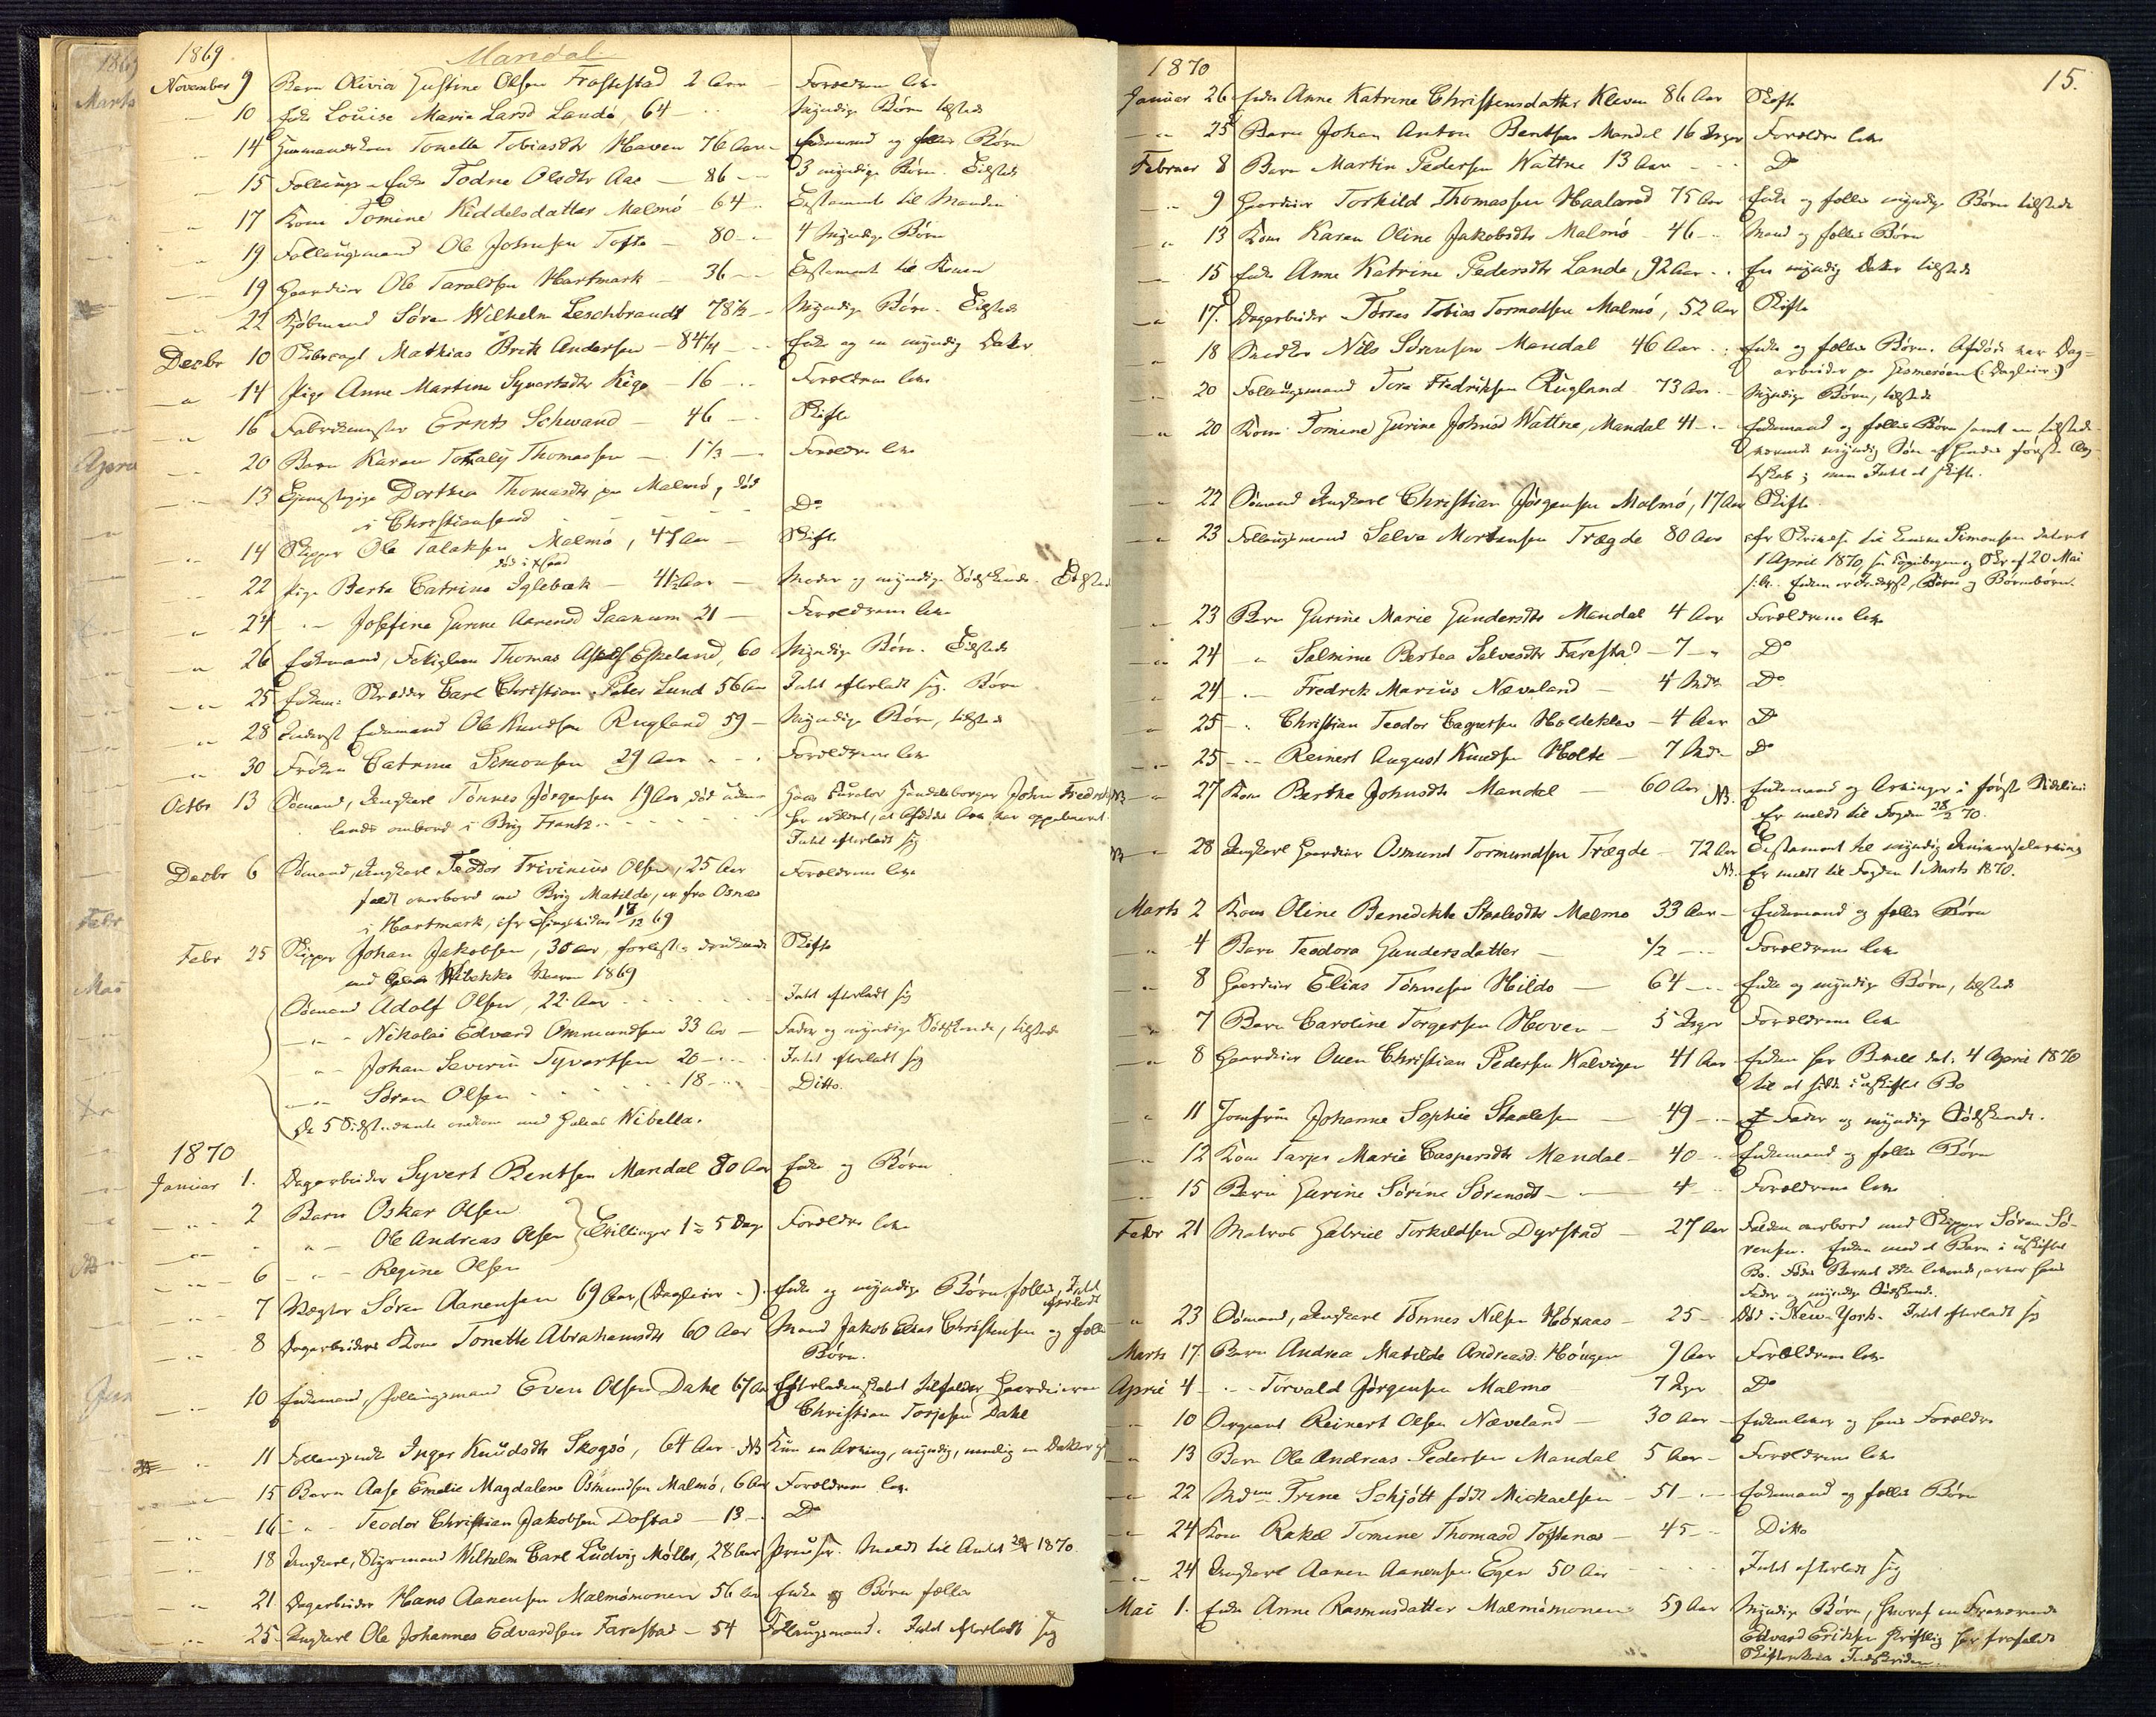 1869 Mandal
November 9 Barn Olivia Justine Olsen Frostestad 2 Aar — Forældrene lever
— 10 Enke Louise Marie Larsd Landö, 64 — Myndige Börn tilstede
— 14 Huusmandskone Tonette Tobiasdtr Haaven 76 Aar — Enkemand og fælles Börn
— 15 Follaugs Enke Todne Olsdtr Aas — 86 — 3 myndige Börn. Tilstede
— 17 Kone Tomine Kiddelsdatter Malmö — 64 — Testament til Manden
— 19 Follaugsmand Ole Johnsen Tofte — 80 — 4 Myndige Börn
— 19 Gaardbruger Ole Taraldsen Hartmark — 36 — Testament til Konen
— 22 Kjöbmand Sören Wilhelm Leschbrandt 78½ — Myndige Börn. Tilstede
Decbr 10 Skibscapt Mathias Britz Andersen — 84¼ — Enke og en myndig Datter
— 14 Pige Anne Martine Syvertsdtr Kige — 16 — Forældrene lever
— 16 Fabrikmester Ernts Schwand — 46 — Skifte
— 20 Barn Karen Thomassen — 1⅓ — Forældre lever
— 13 Tjenestepige Dorthea Thomasdtr paa Malmö, död
i Christiansand — Do
— 14 Skipper Ole Talaksen Malmö, 47 Aar — Skifte
— 22 Pige Berte Catrine Iglebæk — 41½ Aar — Moder og myndige Södskende. Tilstede
— 24 — Josefine Gurine Aarensd Saanum 21 — Forældrene lever
— 26 Enkemand, Thomas Eskeland, 60 Myndige Börn. Tilstede
— 25 Enkem. Skrædder Carl Christian Peter Lund 56 Aar Intet efterladt sig. Börn
— 28 Inderst Enkemand Ole Knudsen Rugland 59 — Myndige Börn, tilstede
— 30 Fröken Catrine Simonsen 29 Aar — Forældrene lever
Octbr 13 Sömand, Ungkarl Tönnes Jörgensen 19 Aar, död uden- Hans Curator Handelsborger John Fredriksen
lands ombord i Brig Frantz — har erklæret, at Afdödes Arv har oppebaaret.
Intet efterladt sig
Decbr 6 Sömand, Ungkarl Teodor Trivinius Olsen, 25 Aar Forældrene lever
faldt overbord med Brig Matilde, er fra Osnes
i Hartmark, 17/12 69
Febr 25 Skipper Johan Jakobsen, 30 Aar, forlist og druknede Skifte
med Galeas Wibekka 1869
Sömand Adolf Olsen, 22 Aar — Intet efterladt sig
— Nikolai Edvard Ommundsen 33 Aar — Fader og myndige Södskende, tilstede
— Johan Severin Syvertsen 20 — Intet efterladt sig
— Sören Olsen — 18 — Ditto.
De 5 Sidstnævnte omkom med Galeas Wibekka.
1870
Januar 1. Dagarbeider Syvert Bentsen Mandal 80 Aar Enke og Börn
— 2 Barn Oskar Olsen
— Ole Andreas Olsen } Trillinger 1 5 Dage Forældre lever
— 6 — Regine Olsen
— 7 Vægter Sören Aanensen 69 Aar, Enke og myndige Börn fælles, Intet
efterladt
— 8 Dagarbeiders Kone Tonette Abrahamsdtr 60 Aar Mand Jakob Elias Christensen og fælles
Börn.
— 10 Enkemand, Follaugsmand Even Olsen Dahl 67 Aar Efterladenskabet tilfalder Gaardbruger
Christian Torjesen Dahl
— 11 Follaugsenke Inger Knudsdtr Skogsö, 64 Aar NB Kun en Arving, myndig, nemlig en Datter
— 15 Barn Aase Emelie Magdalene Osmundsen Malmö, 6 Aar Forældrene lever
— 16 — Teodor Christian Jakobsen Dostad — 13 — Do
— 18 Ungkarl, Styrmand Wilhelm Carl Ludvig Möller, 28 Aar Preusser. Meldt til Amtet 1870.
— 21 Dagarbeider Hans Aanensen Malmömonen 56 Aar Enke og Börn fælles
— 25 Ungkarl Ole Johannes Edvardsen Farestad — 54 Follaugsmand. Intet efterladt sig
1870 15.
Januar 26 Enke Anne Katrine Christensdatter Kleven 86 Aar Skifte
— 25 Barn Johan Anton Bentsen Mandal 16 Dage Forældre lever
Februar 8 Barn Martin Pedersen Wattne 13 Aar — Do
— 9 Gaardbruger Torkild Thomassen Haaland 75 Aar Enke og fælles myndige Börn tilstede
— 13 Kone Karen Oline Jakobsdtr Malmö — 46 — Mand og fælles Börn
— 15 Enke Anne Katrine Pedersdtr Lande, 92 Aar — En myndig Datter tilstede
— 17. Dagarbeider Törres Tobias Tormodsen Malmö, 52 Aar Skifte
— 18 Snedker Nils Sörensen Mandal 46 Aar — Enke og fælles Börn. Afdöde var Dag-
arbeider paa Gismeröen
— 20 Follaugsmand Tore Fredriksen Rugland 73 Aar — Myndige Börn, tilstede
— 20 Kone Tomine Gurine Johnsd Wattne, Mandal 41 — Enkemand og fælles Börn samt en tilstede-
værende myndig Sön af hendes förste Æg-
teskab; men Intet at skifte.
— 22 Sömand Ungkarl Christian Jörgensen Malmö, 17 Aar Skifte.
— 23 Follaugsmand Salve Mortensen Trægde 80 Aar efter Skrivelse fra Simonsen dateret
1 April 1870, 20 Mai
Börn og Börnebörn.
— 23 Barn Gurine Marie Gundersdtr Mandal 4 Aar Forældrene lever
— 24 — Salmine Bertea Salvesdtr Farestad — 7 — Do
— 24 — Fredrik Marius Næveland — 4 Mdr Do
— 25 — Christian Teodor Holdeklev — 4 Aar Do
— 25 — Reinert August Knudsen Holte — 7 Mdr Do
NB — 27 Kone Berthe Johnsdtr Mandal — 60 Aar NB. Enkemand og Arvinger i förste Sidelinie
Er meldt til Fogden 28/2 70.
NB — 28 Ungkarl Gaardbruger Osmund Tormundsen Trægde — 72 Aar Testament til myndig Universalarving
NB. Er meldt til Fogden 1 Marts 1870.
Marts 2 Kone Oline Benedikte Staalesdtr Malmö 33 Aar — Enkemand og fælles Börn
— 4 Barn Teodora Gundersdatter — ½ — Forældrene lever
— 8 Gaardbruger Elias Tönnesen Hildo — 64 — Enke og myndige Börn, tilstede
— 7 Barn Caroline Torgersen Hoven — 5 Dage Forældrene lever
— 8 Gaardbruger Ouen Christian Pedersen Walvigen 41 Aar — Enken har Bevill. dat. 4 April 1870
til at sidde i uskiftet Bo
— 11 Jomfru Johanne Sophie Staalesen — 49 — Fader og myndige Södskende.
— 12 Kone Tarjer Marie Caspersdtr Mandal — 40 — Enkemand og fælles Börn
— 15 Barn Gurine Sörine Sörensdt — 4 — Forældrene lever
Febr 21 Matros Gabriel Torkildsen Dyrstad — 27 Aar Falden overbord med Skipper Sören Sö-
rensen. Enken med et Barn i uskiftet
Bo. Födes Barnet ikke levende, arver hans
Fader og myndige Södskende.
— 23 Sömand, Ungkarl Tönnes Nilsen Höxaas — 25 — Död i New-York. Intet efterladt sig
Marts 17. Barn Andrea Matilde Andreasd. Höugen 9 Aar Forældrene lever
April 4 — Torvald Jörgensen Malmö 7 Dage Do
— 10 Sergeant Reinert Olsen Næveland — 30 Aar — Enken lever og hans Forældre
— 13 Barn Ole Andreas Pedersen Mandal 5 Aar — Forældrene lever
— 22 Mdme Trine Schjött födt Mickaelsen — 51 — Enkemand og fælles Börn
— 24 Kone Rakel Tomine Thomasd Toftenes — 45 — Ditto
— 24 Ungkarl Aanen Aanensen Egen 50 Aar — Intet efterladt sig
Mai 1. Enke Anne Rasmusdatter Malmömonen 59 Aar Myndige Börn, hvoraf en Fraværende
Edvard Eriksen skriftlig har frafaldt
Skifterettens Indskriden.